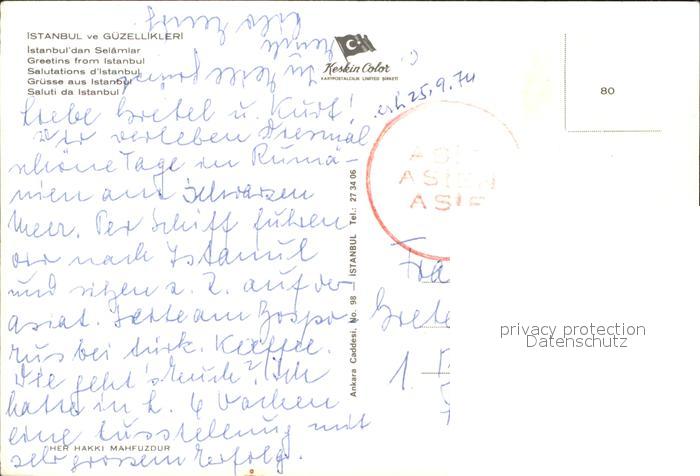 İSTANBUL ve GÜZELLİKLERİ
İstanbul'dan Selâmlar
Greetins from Istanbul
Salutations d'Istanbul
Grüsse aus Istanbul
Saluti da Istanbul
Keskin Color
KARTPOSTALCILIK LIMITED ŞİRKETİ
80
erh. 25.9.74
Liebe Gretel u. Kurt!
Wir verleben diesmal
schöne Tage in Rumä-
nien am Schwarzen
Meer. Per Schiff fuhren
wir nach Istanbul
und sitzen z. Z. auf der
asiat. Seite am Bospo-
rus bei türk. Kaffee.
Wie geht's Euch? Ich
hatte in L. 6 Wochen
eine Ausstellung mit
sehr grossem Erfolg.
ASIEN
ASIE
Ankara Caddesi, No. 98 İSTANBUL Tel.: 27 34 06
Grete
1.
privacy protection
Datenschutz
HER HAKKI MAHFUZDUR